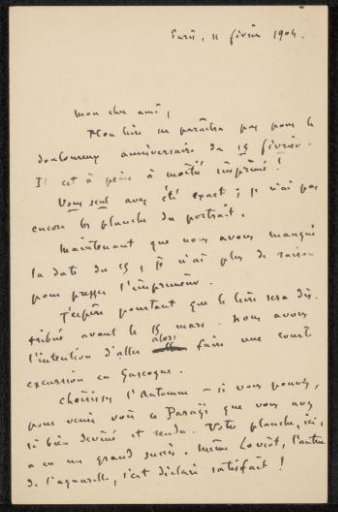 Paris, 11 février 1904.
mon cher ami,
Mon livre ne paraîtra pas pour le
douloureux anniversaire du 15 février.
Il est à peine à moitié imprimé !
Vous seul avez été exact ; je n'ai pas
encore la planche du portrait.
Maintenant que nous avons manqué
la date du 15, je n'ai plus de raison
pour presser l'imprimeur.
J'espère pourtant que le livre sera dis-
tribué avant le 15 mars. Nous avons
l'intention d'aller alors faire une courte
excursion en Gascogne.
Choisissez l'Automne – si vous pouvez,
pour venir voir ce Paraÿs que vous avez
si bien deviné et rendu. Votre planche, ici,
a eu un grand succès. Même Loviot, l'auteur
de l'aquarelle, s'est déclaré satisfait !